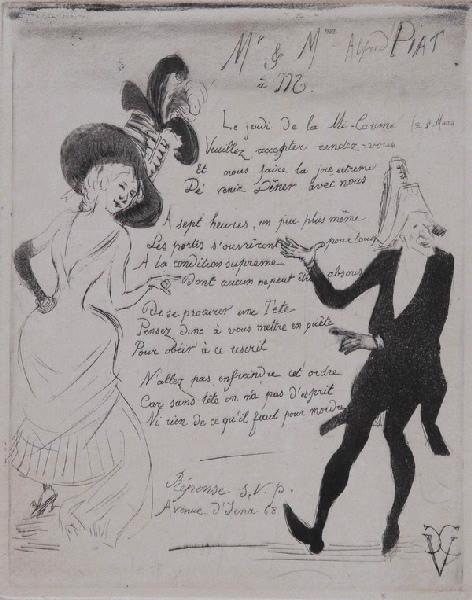 Mr & Mme Alfred PIAT
à M.
Le jeudi de la Mi-Carême 12 Mars
Veuillez accepter rendez-vous
Et nous faire la joie extreme
De venir Dîner avec nous
A sept heures, un peu plus même
Les portes s'ouvriront pour tous
A la condition supreme
Dont aucun ne peut être absous
De se procurer une Tete
Pensez donc à vous mettre en quête
Pour obéir à ce rescrit
N'allez pas enfreindre cet ordre
Car sans tête on n'a pas d'esprit
Ni rien de ce qu'il faut pour mordre
Réponse S.V.P.
Avenue d'Iéna 68